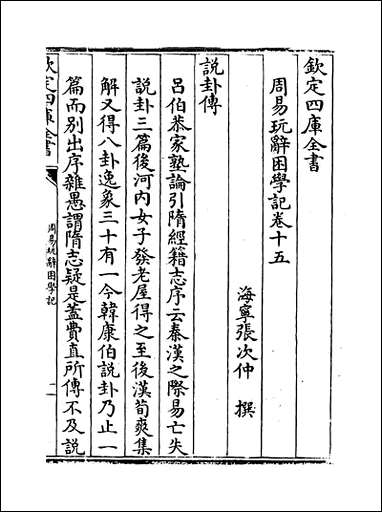 欽定四庫全書
周易玩辭困學記卷十五
海寧張次仲 撰
說卦傳
呂伯恭家塾論引隋經籍志序云秦漢之際易亡失
說卦三篇後河内女子發老屋得之至後漢荀爽集
解又得八卦逸象三十有一今韓康伯說卦乃止一
篇而別出序雜愚謂隋志疑是蓋費直所傳不及說
欽定四庫全書
周易玩辭困學記
一